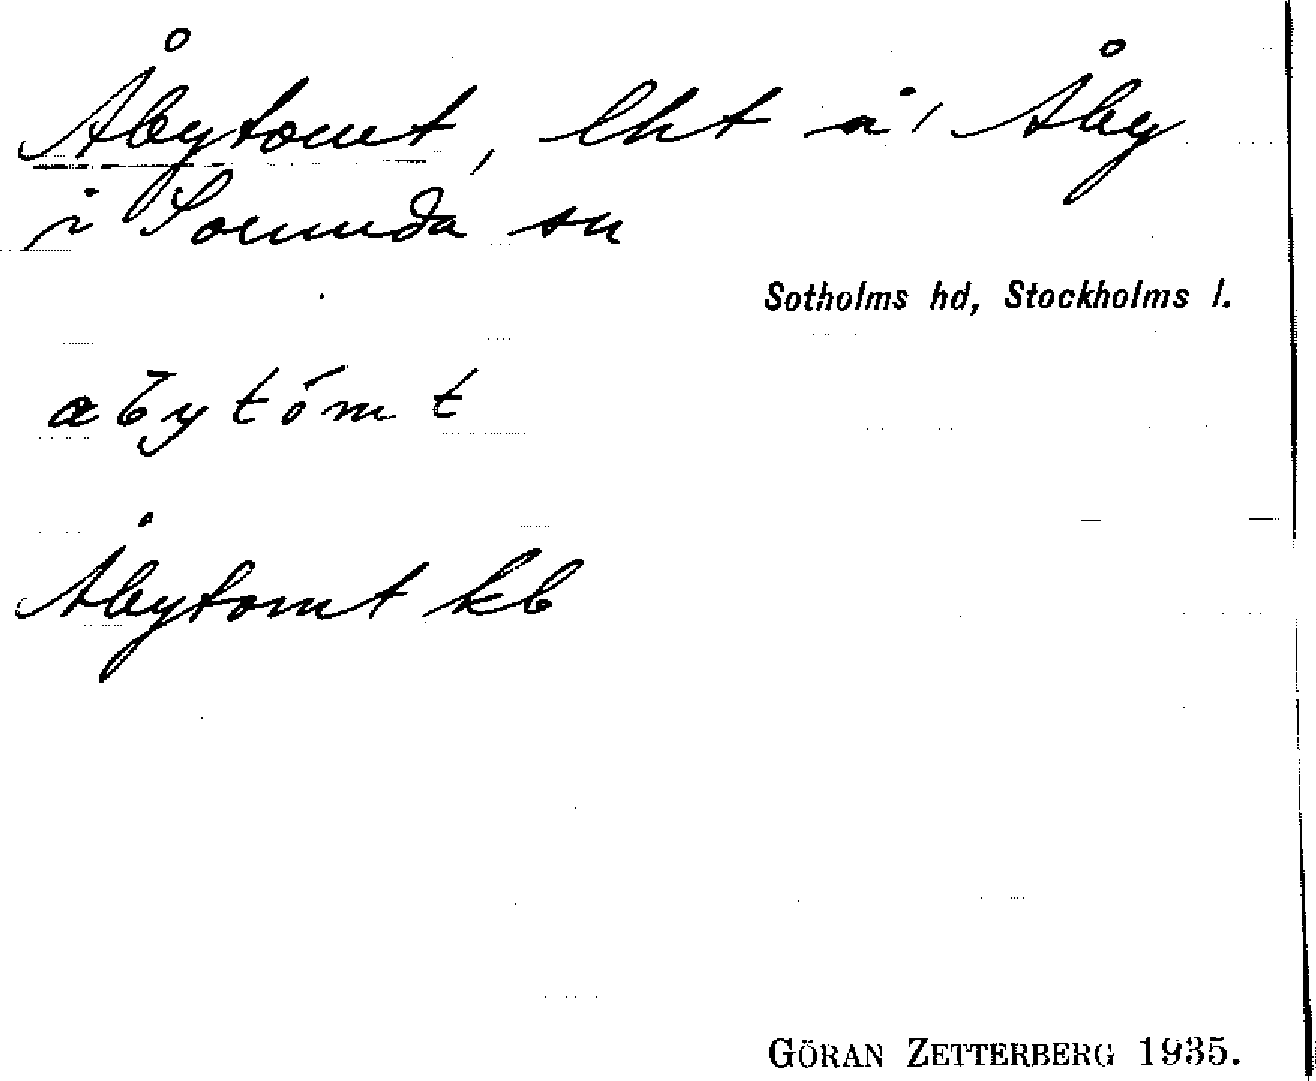 Åbytomt, lht å Åby
i Sorunda sn
Sotholms hd, Stockholms l.
åbytómt
Åbytomt kb
GÖRAN ZETTERBERG 1935.